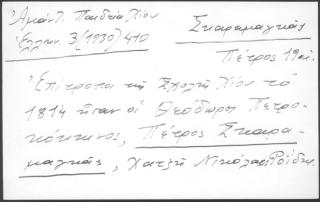 Ἀμάντ. Παιδεία Χίου
Ἑλλην. 3(1930) 410
Σκαραμαγκᾶς
Πέτρος 19αἰ.
Ἐπίτροποι τῆς Σχολῆς Χίου τὸ
1814 ἦσαν οἱ Θεόδωρος Πετρο-
κόκκινος, Πέτρος Σκαρα-
μαγκᾶς, Χατζῆ Νικόλαος Ροΐδης